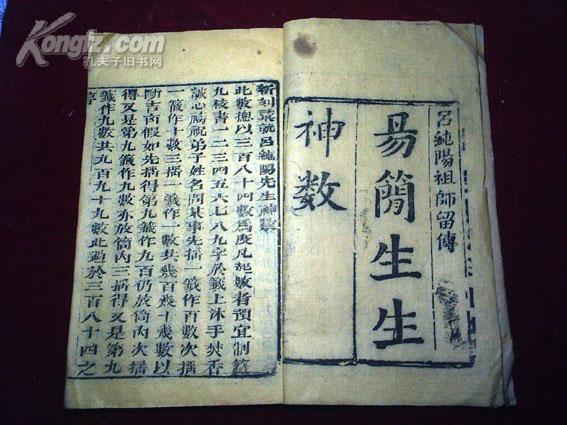 Kongfz.com
孔夫子旧书网
呂純陽祖師留傳
易簡生生
神数
新刻纂就呂純陽先生神数
此数揔以三百八十四数爲度凡起数者預宜制籤
九枝書一二三四五六七八九字於籤上沐手焚香
誠心禱祝弟子姓名問某事先搯一籤作百数次搯
一籤作十数三搯一籤作一数共幾百幾十幾数以
断吉凶假如先搯得第九籤作九百仍放筒內次搯
得又是第九籤作九数亦放筒內三搯得又是第九
籤作九数共九百九十九数此過於三百八十四之